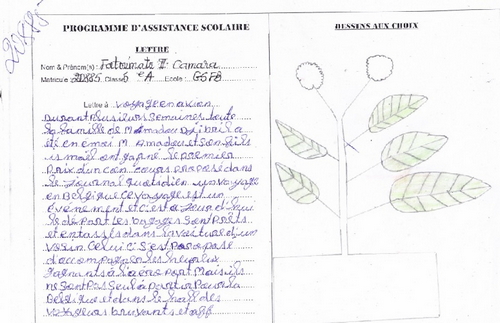 20885
PROGRAMME D'ASSISTANCE SCOLAIRE
DESSINS AUX CHOIX
LETTRE
Nom & Prénom(s) : Fatoumata II Camara
Matricule 20885 Classe 6e A Ecole: GSFB
Lettre à voyage en avion
Durant plusieurs semaines toute
la famille de M Amadou Djibril a
été en émoi M Amadou et son fils
ismaïl ont gagné le premier
prix d'un concours proposé dans
le journal quotidien un voyage
en Belgique ce voyage est un
événement et c'est aujourd'hui
le départ Les bagages sont prêts
et entassés dans la voiture d'un
voisin Celui ci s'est proposé
d'accompagner les heureux
gagnants à l'aéroport Mais ils
ne sont pas seul à partir pour la
Belgique et dans le hall des
voyageurs bruyants et